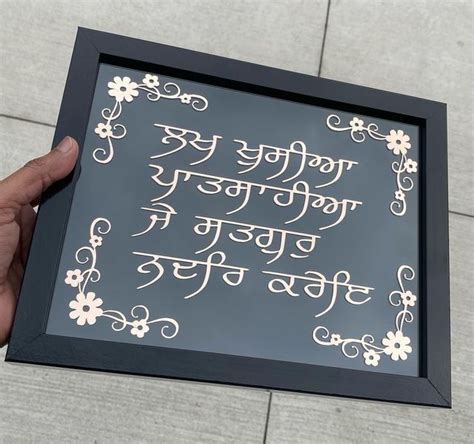 ਲਖ ਖੁਸੀਆ
ਪਾਤਸਾਹੀਆ
ਜੇ ਸਤਗੁਰੁ
ਨਦਰਿ ਕਰੇਇ